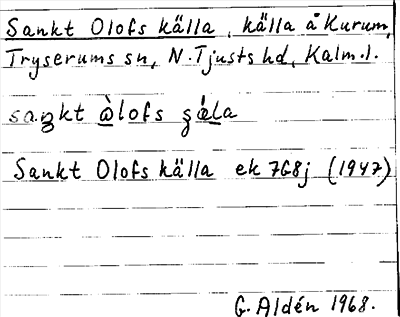 Sankt Olofs källa, källa å Kurum,
Tryserums sn, N. Tjusts hd, Kalm. l.
saŋkt òlofs
Sankt Olofs källa ek 7G8j (1947)
G. Aldén 1968.